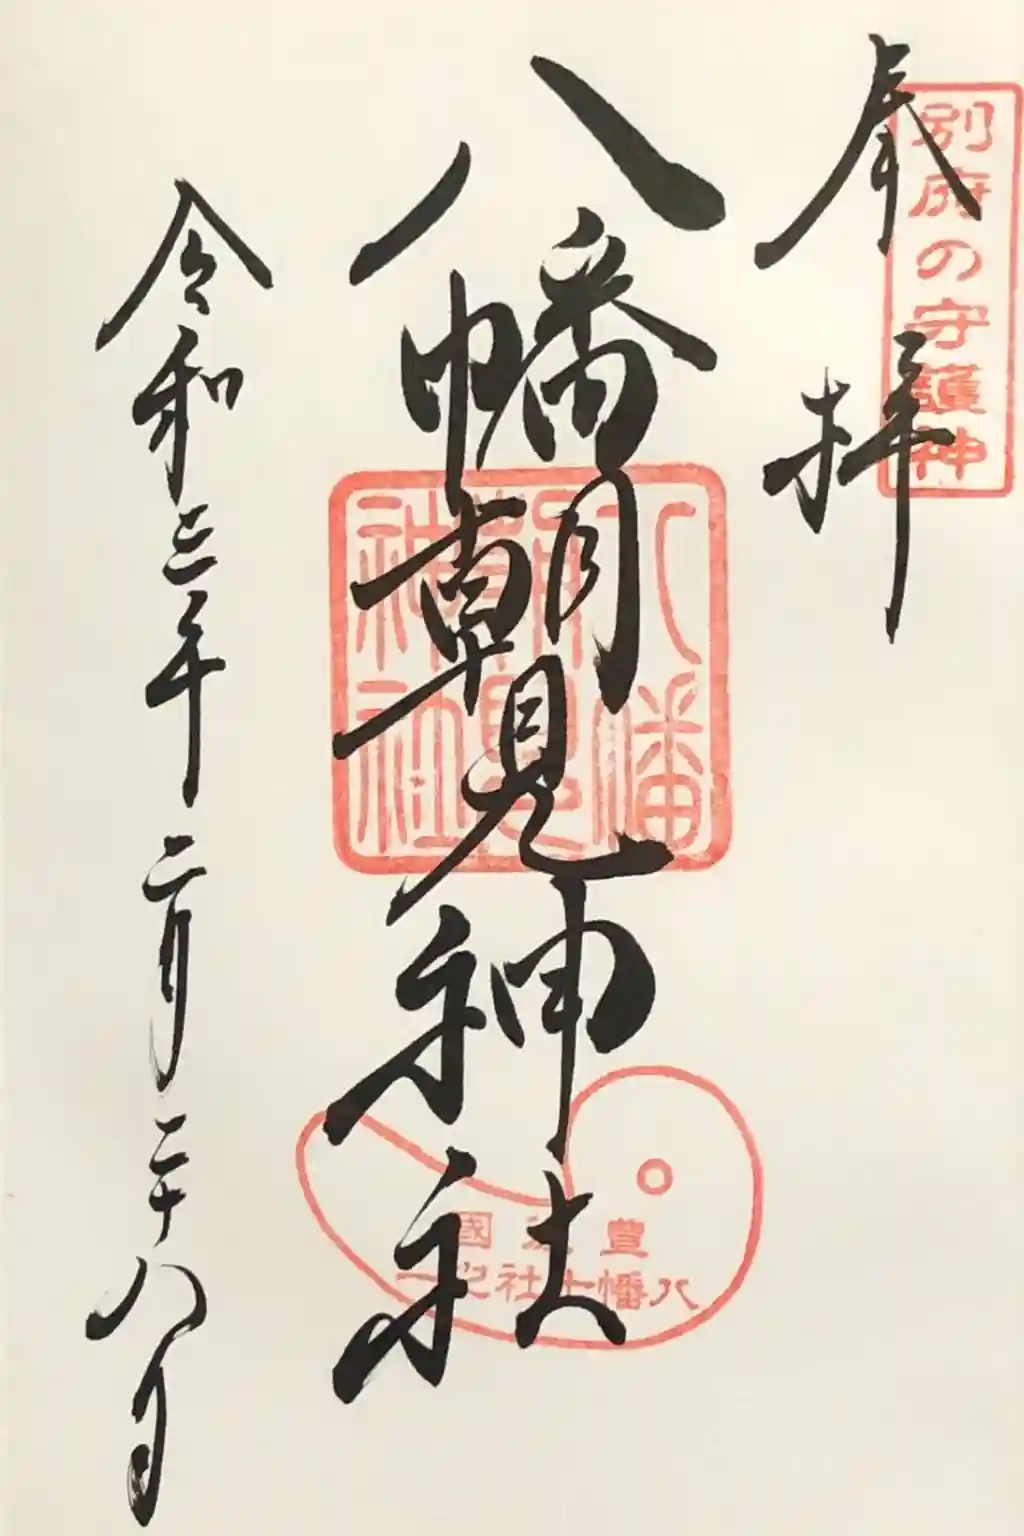 奉拝
別府の守護神
八幡朝見神社
八幡朝見神社
豊後國
八幡十社之一
令和三年二月二十八日